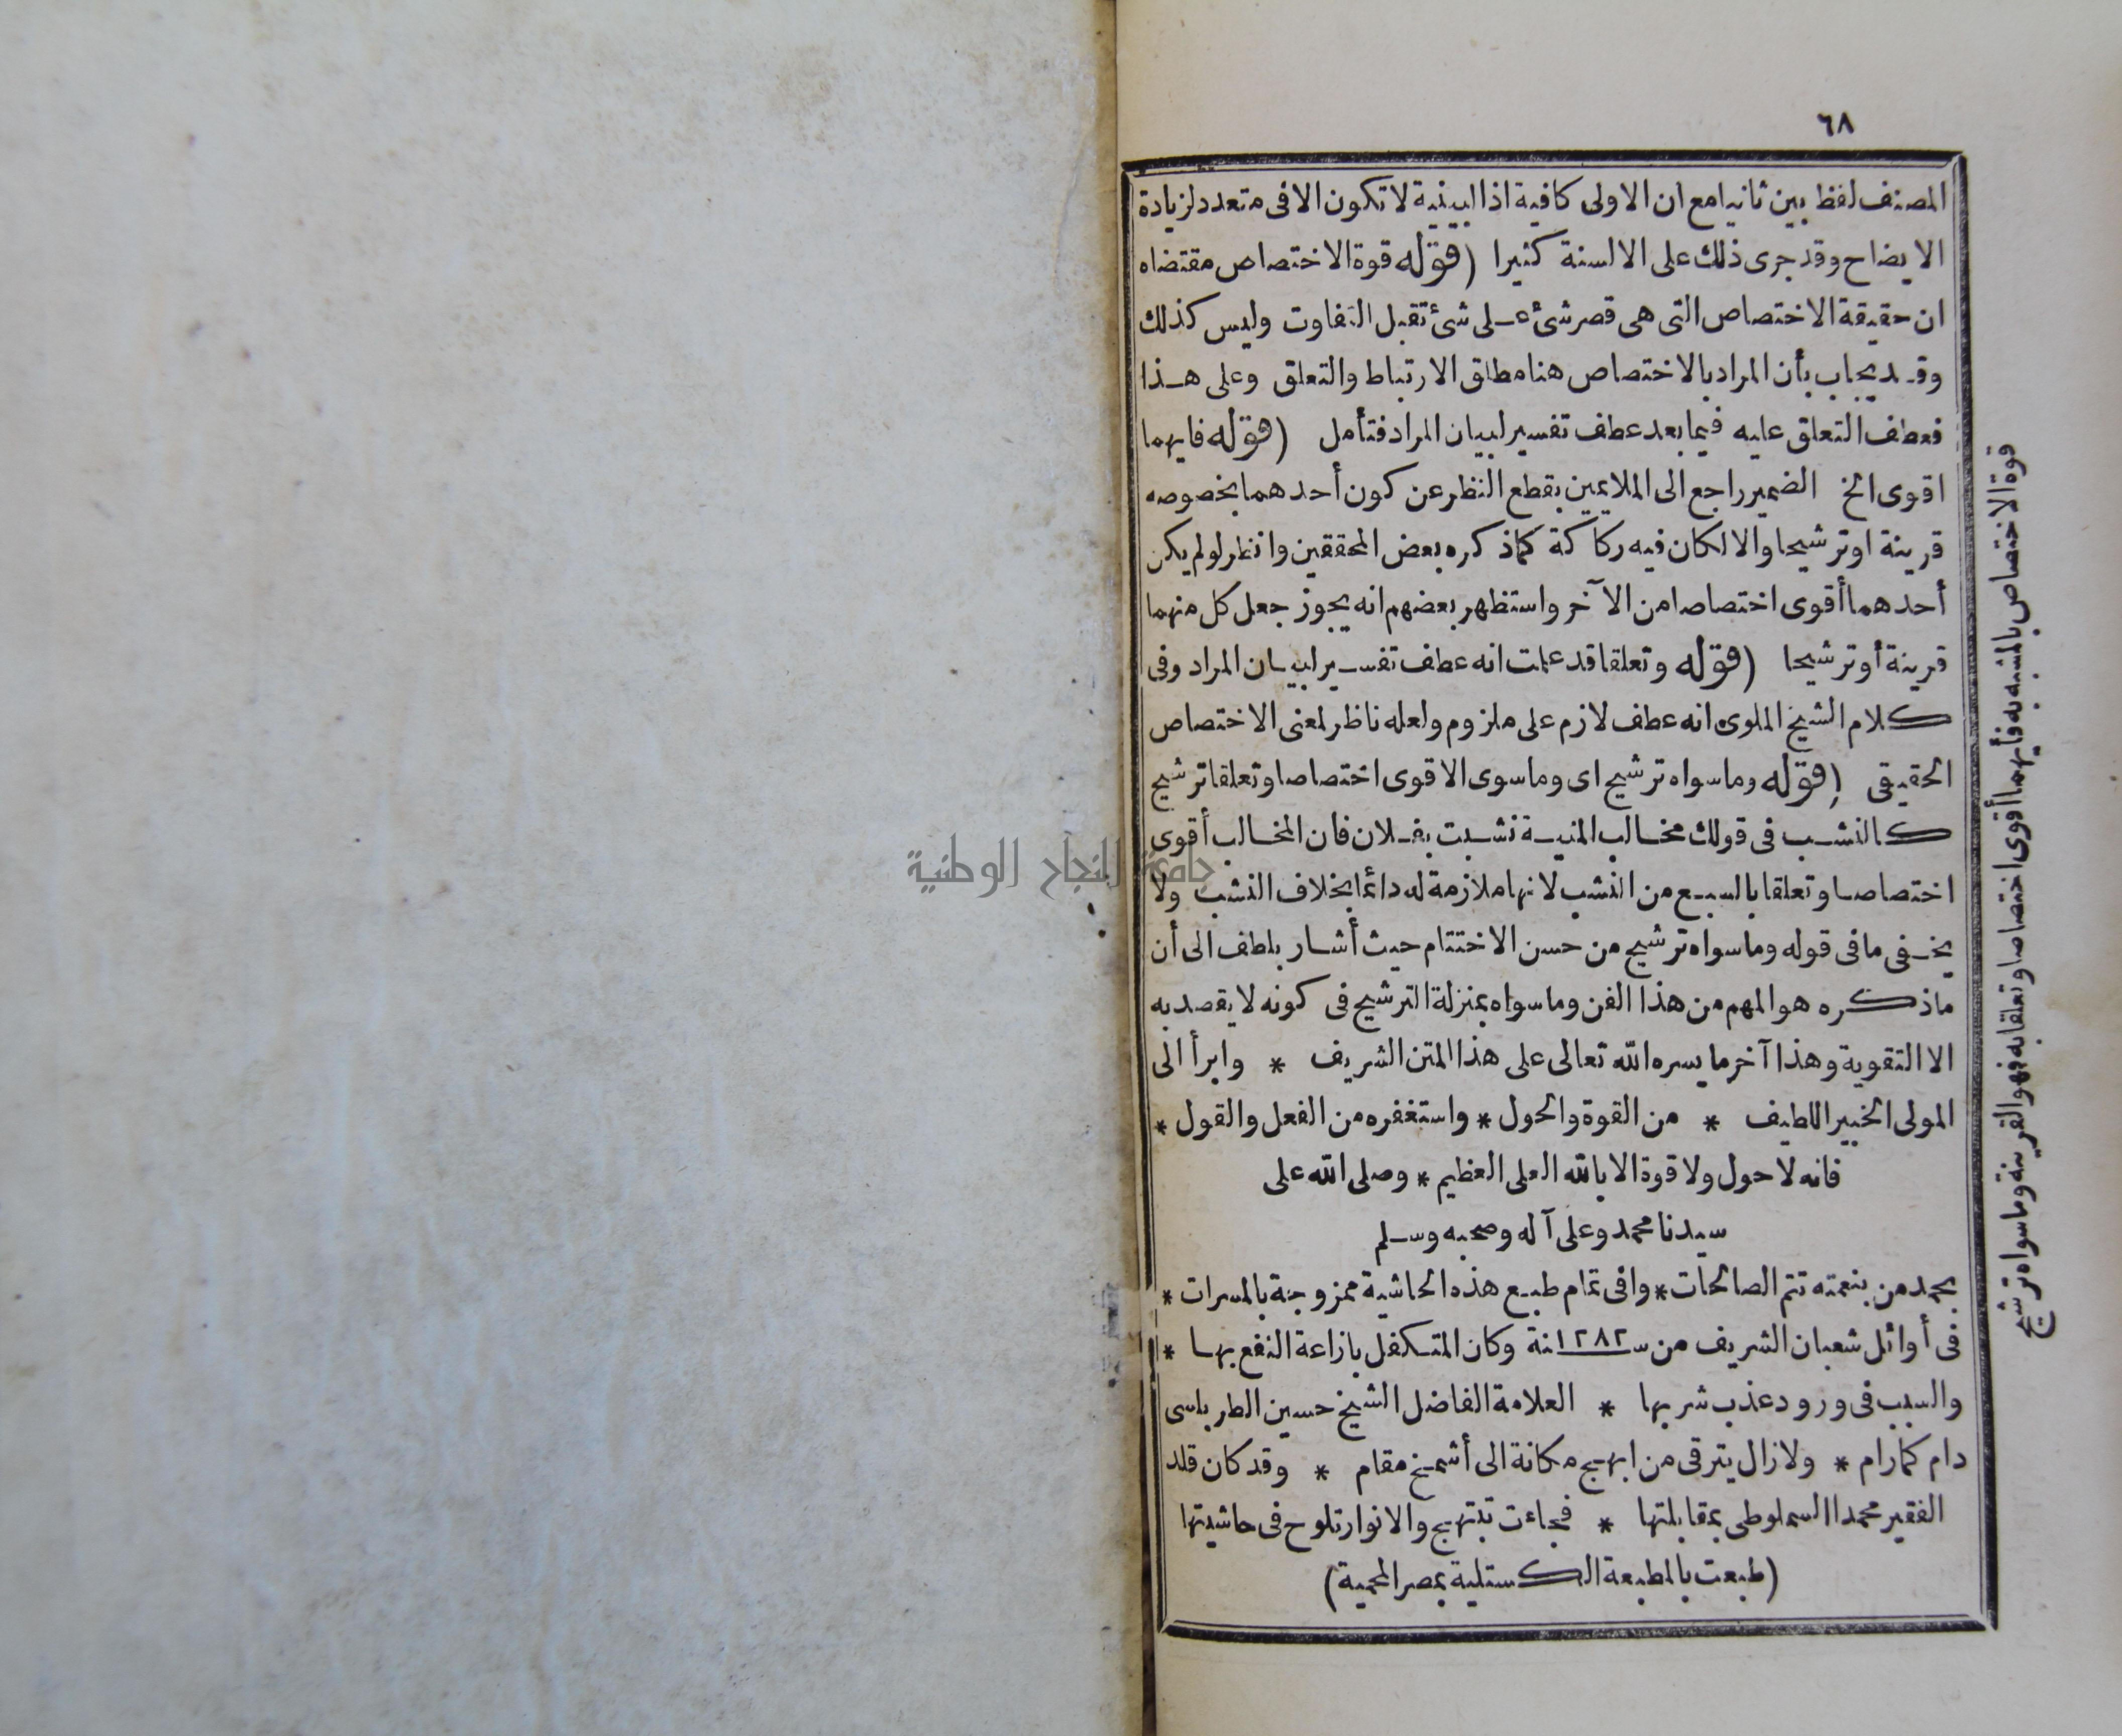 ٦٨
المصنف لفظ بين ثانيا مع ان الاولى كافية اذ البينية لا تكون الا فى متعدد لزيادة
الايضاح وقد جرى ذلك على الالسنة كثيرا (قوله قوة الاختصاص مقتضاه
ان حقيقة الاختصاص التى هى قصر شئ على شئ تقبل التفاوت وليس كذلك
وقد يجاب بأن المراد بالاختصاص هنا مطلق الارتباط والتعلق وعلى هذا
فعطف التعلق عليه فيما بعد عطف تفسير لبيان المراد فتأمل (قوله فايهما
اقوى الخ الضمير راجع الى الملايمين بقطع النظر عن كون أحدهما بخصوصه
قرينة او ترشيحا والا لكان فيه ركاكة كما ذكره بعض المحققين وانظر لو لم يكن
أحدهما أقوى اختصاصا من الآخر واستظهر بعضهم انه يجوز جعل كل منهما
قرينة أو ترشيحا (قوله وتعلقا قد علمت انه عطف تفسير لبيان المراد وفى
كلام الشيخ الملوى انه عطف لازم على ملزوم ولعله ناظر لمعنى الاختصاص
الحقيقى (قوله وما سواه ترشيح اى وما سوى الاقوى اختصاصا وتعلقا ترشيح
كالنشب فى قولك مخالب المنية نشبت بفلان فان المخالب أقوى
اختصاصا وتعلقا بالسبع من النشب لانها ملازمة له دائما بخلاف النشب ولا
يخفى ما فى قوله وما سواه ترشيح من حسن الاختتام حيث أشار بلطف الى أن
ما ذكره هو المهم من هذا الفن وما سواه بمنزلة الترشيح فى كونه لا يقصد به
الا التقوية وهذا آخر ما يسره الله تعالى على هذا المتن الشريف * وابرأ الى
المولى الخبير اللطيف * من القوة والحول * واستغفره من الفعل والقول *
فانه لا حول ولا قوة الا بالله العلى العظيم * وصلى الله على
سيدنا محمد وعلى آله وصحبه وسلم
بحمد من بنعمته تتم الصالحات * وافى تمام طبع هذه الحاشية ممزوجة بالمسرات *
فى أوائل شعبان الشريف من سنة ١٢٨٢ وكان المتكفل باذاعة النفع بها *
والسبب فى ورود عذب شربها * العلامة الفاضل الشيخ حسين الطرابلسى
دام كما رام * ولا زال يترقى من ابهج مكانة الى أشمخ مقام * وقد كان قلد
الفقير محمدا السملوطى بمقابلتها * فجاءت تبتهج والانوار تلوح فى حاشيتها
(طبعت بالمطبعة الكستلية بمصر المحمية)
قوة الاختصاص بالمشبه به فأيهما أقوى اختصاصا وتعلقا به فهو القرينة وما سواه ترشيح
جامعة النجاح الوطنية